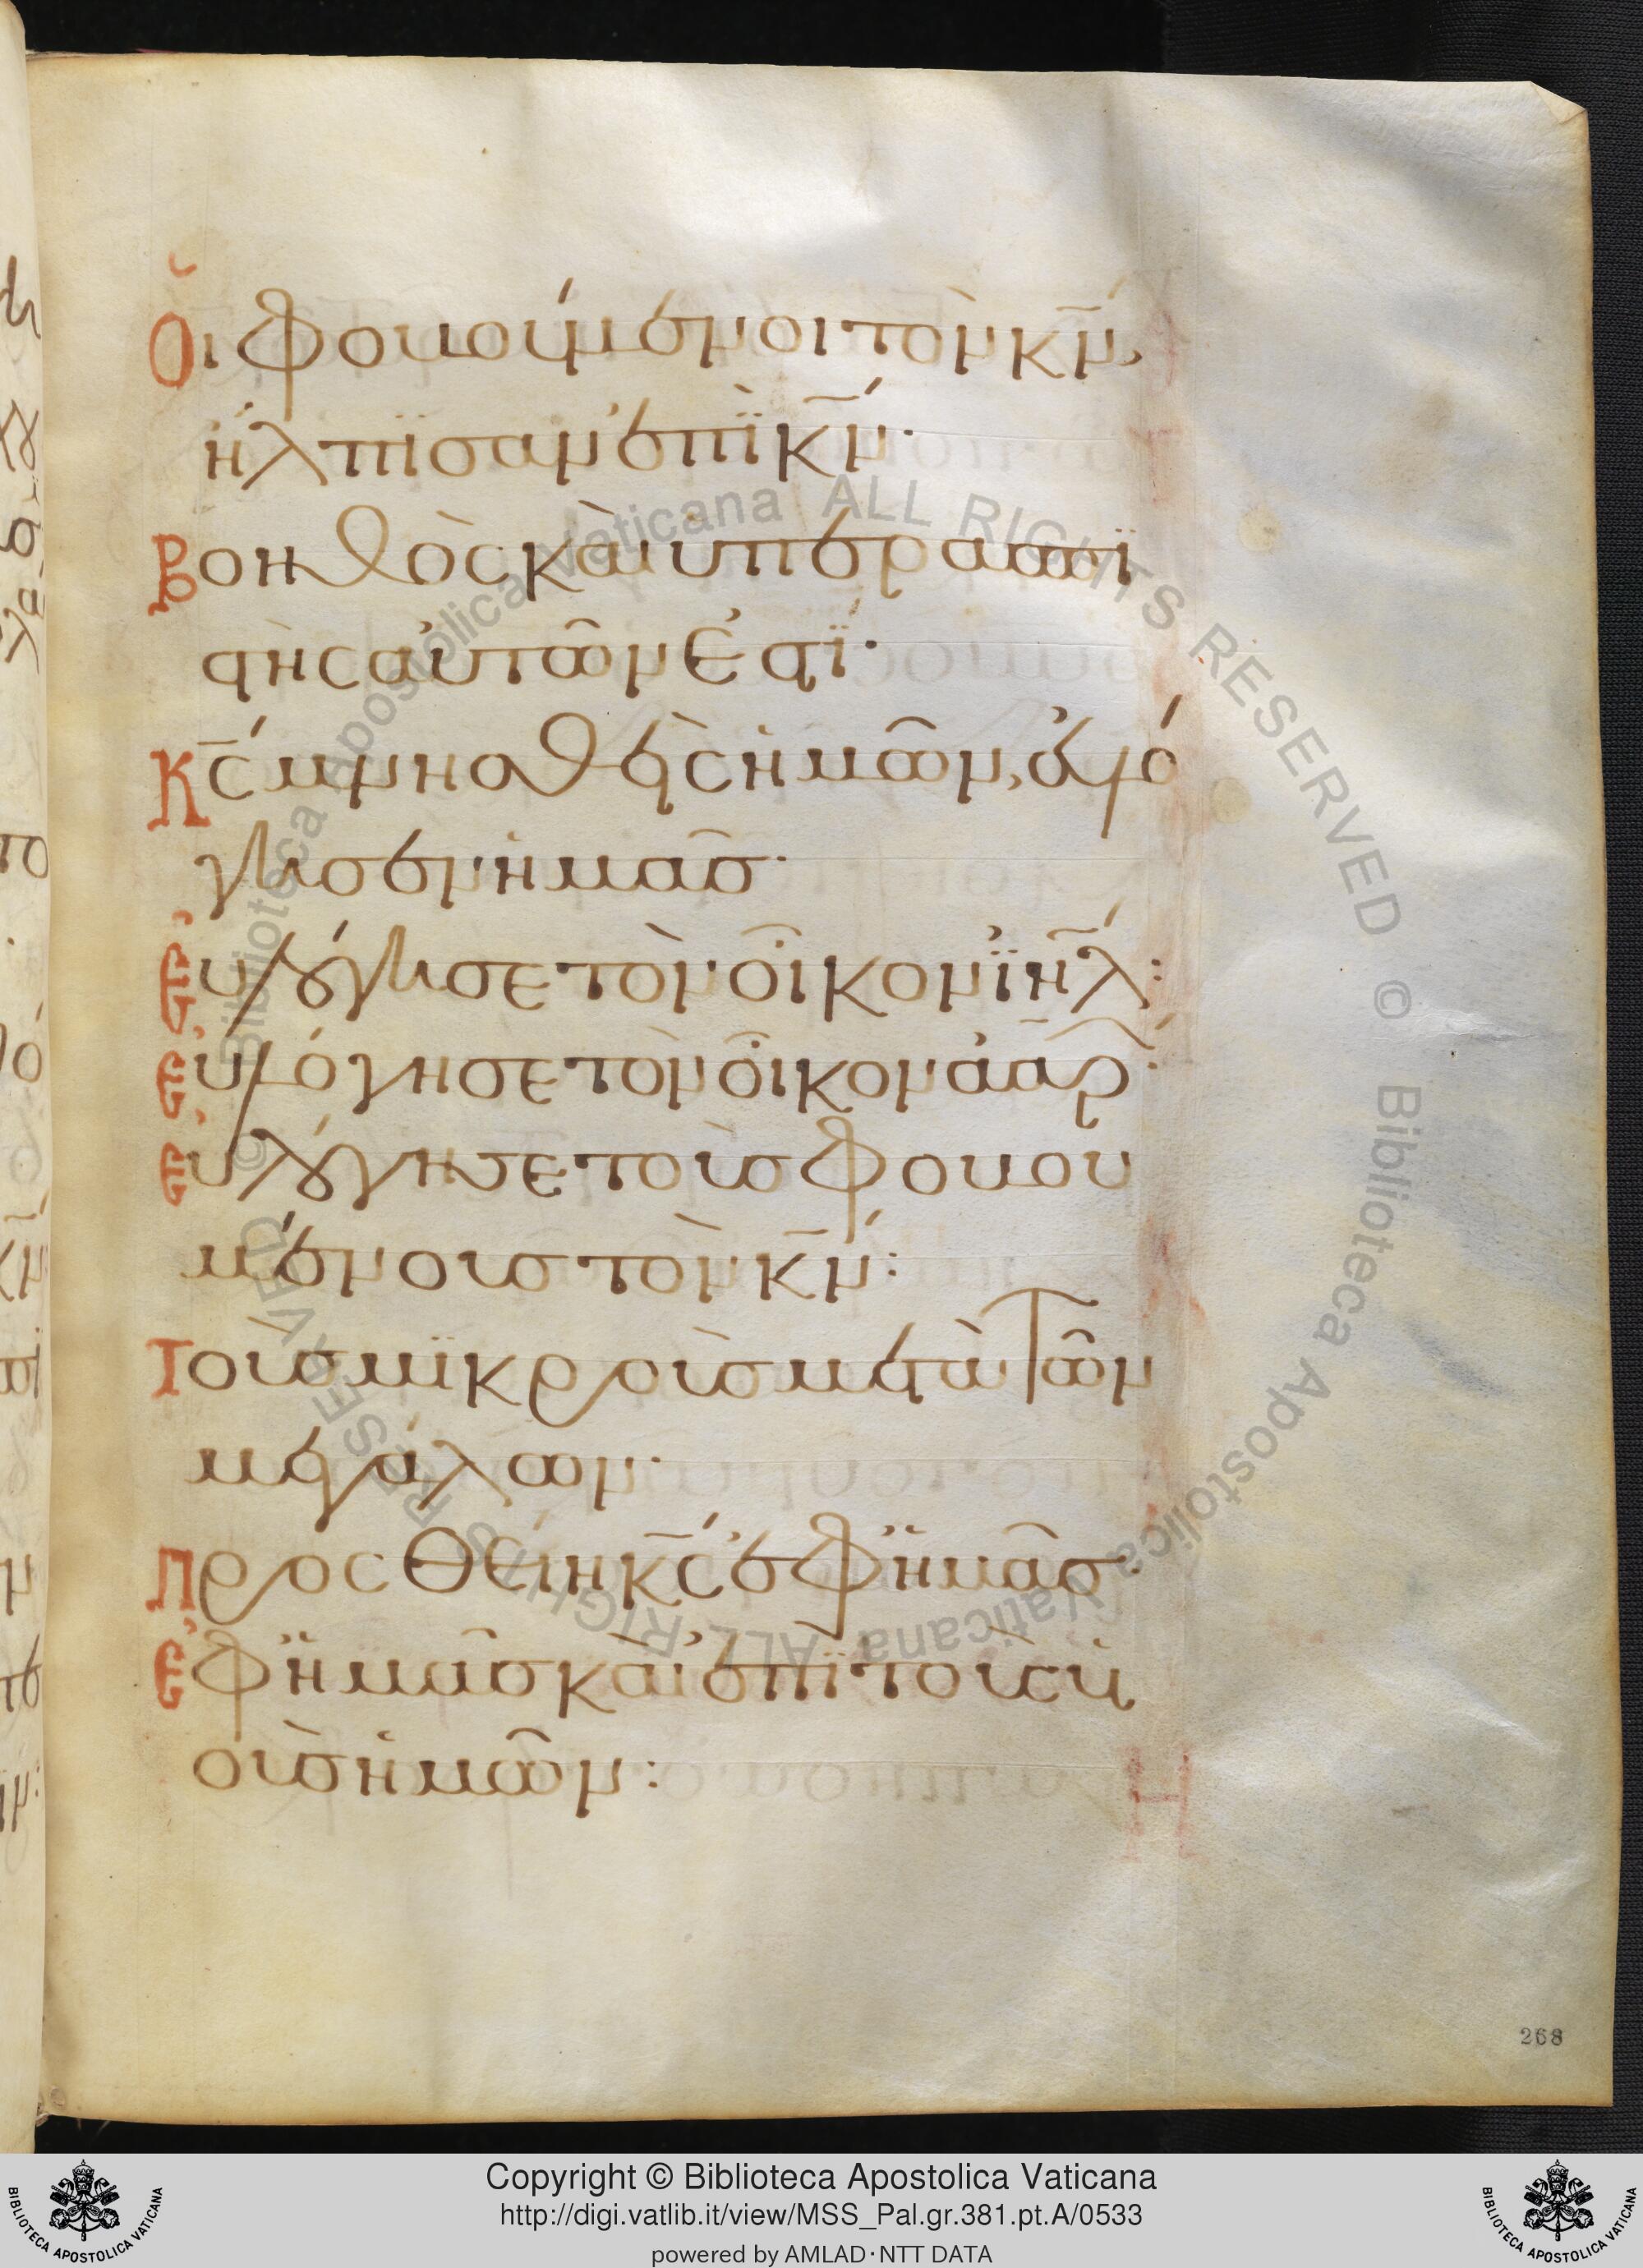 Οἱ φοβούμενοι τὸν κν̅,
ἤλπϊσαν ἐπῒ κν̅·
Βοηθὸς καὶ ὑπερασπϊ
στὴς αὐτῶν ἐστϊ·
Κς̅ μνησθεὶς ἡμῶν, εὐλό
γησεν ἡμᾶς·
Εὐλόγησε τὸν οἶκον ϊηλ̅:
Εὐλόγησε τὸν οἶκον ἀαρ̅:
Εὐλόγησε τοὺς φοβου
μένους τὸν κν̅:
Τοὺς μϊκροὺς μετὰ τῶν
μεγάλων·
Προσθείη κς̅ ἐφ ἡμᾶς·
Ἐφ ἡμᾶς καὶ ἐπῒ τοὺς υἱ
οὺς ἡμῶν:
268
© Biblioteca Apostolica Vaticana ALL RIGHTS RESERVED © Biblioteca Apostolica Vaticana ALL RIGHTS RESERVED
Copyright © Biblioteca Apostolica Vaticana
http://digi.vatlib.it/view/MSS_Pal.gr.381.pt.A/0533
powered by AMLAD·NTT DATA
BIBLIOTECA APOSTOLICA VATICANA
BIBLIOTECA APOSTOLICA VATICANA